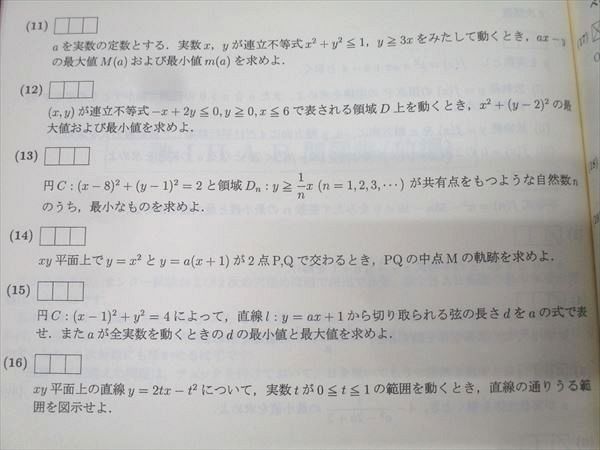 (11)
aを実数の定数とする．実数x，yが連立不等式x²+y²≦1，y≧3xをみたして動くとき，ax−y
の最大値M(a)および最小値m(a)を求めよ．
(12)
(x,y)が連立不等式−x+2y≦0,y≧0,x≦6で表される領域D上を動くとき，x²+(y−2)²の最
大値および最小値を求めよ．
(13)
円C:(x−8)²+(y−1)²=2と領域Dₙ:y≧1/n x (n=1,2,3,⋯)が共有点をもつような自然数n
のうち，最小なものを求めよ．
(14)
xy平面上でy=x²とy=a(x+1)が2点P,Qで交わるとき，PQの中点Mの軌跡を求めよ．
(15)
円C:(x−1)²+y²=4によって，直線l:y=ax+1から切り取られる弦の長さdをaの式で表
せ．またaが全実数を動くときのdの最小値と最大値を求めよ．
(16)
xy平面上の直線y=2tx−t²について，実数tが0≦t≦1の範囲を動くとき，直線の通りうる範
囲を図示せよ．